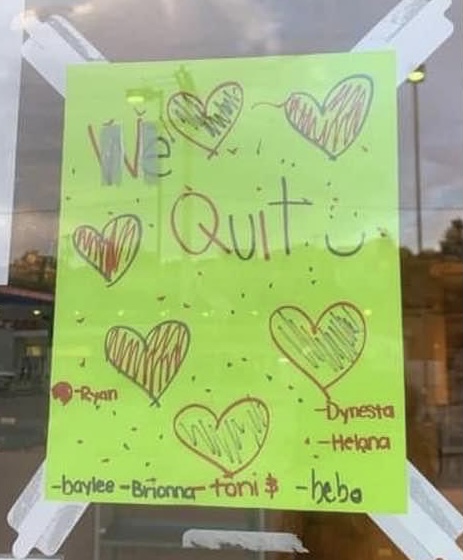 We
Quit ü
-Ryan
-Dynesta
-Helana
-baylee -Brionna- toni $ -bebo